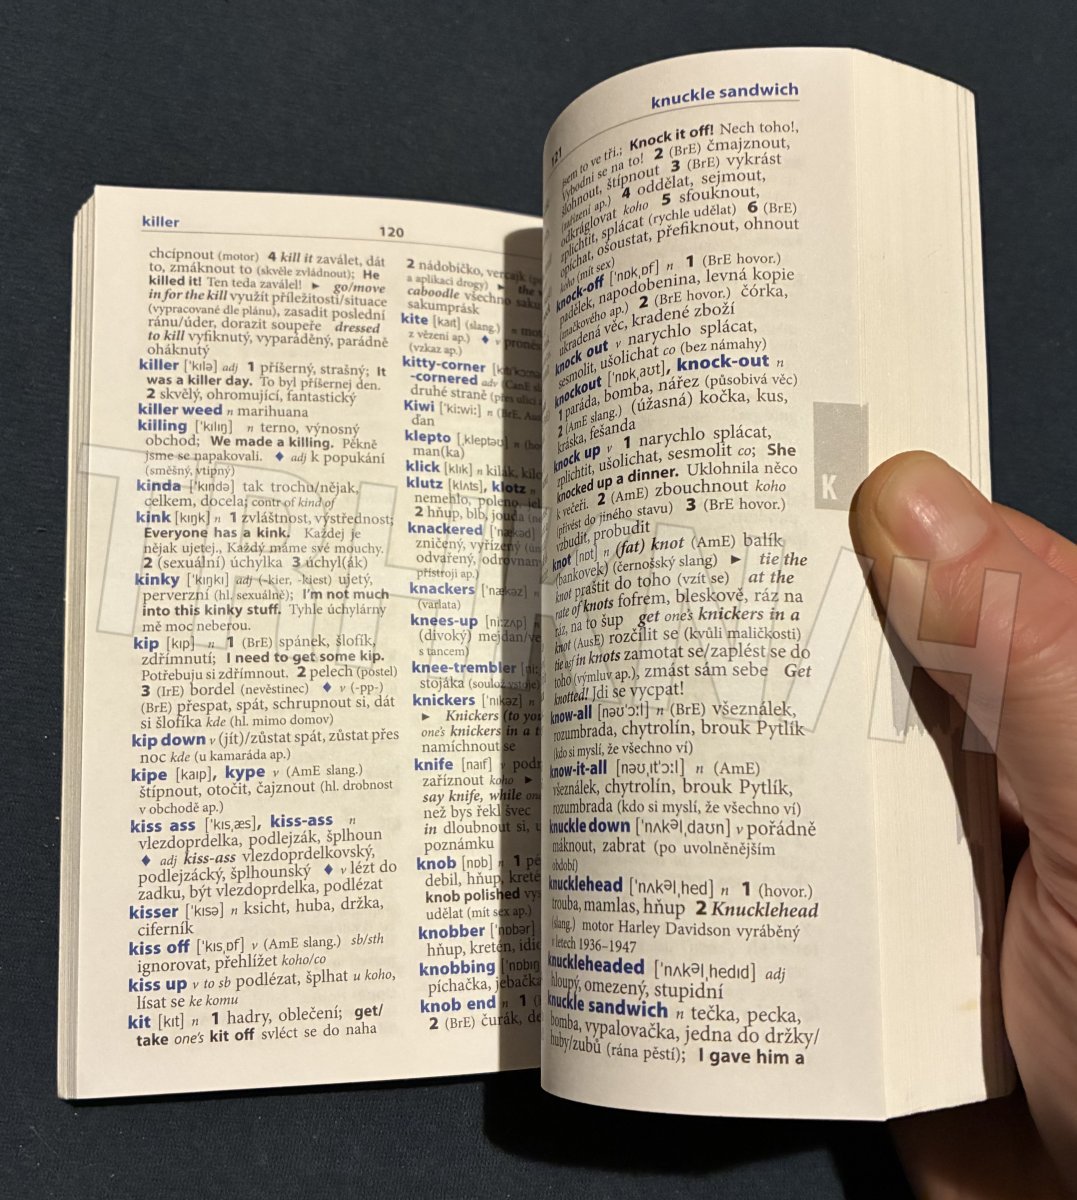 killer
120
chcípnout (motor) 4 kill it zaválet, dát
to, zmáknout to (skvěle zvládnout); He
killed it! Ten teda zaválel! ► go/move
in for the kill využít příležitosti/situace
(vypracované dle plánu), zasadit poslední
ránu/úder, dorazit soupeře dressed
to kill vyfiknutý, vyparáděný, parádně
oháknutý
killer ['kɪlə] adj 1 příšerný, strašný; It
was a killer day. To byl příšernej den.
2 skvělý, ohromující, fantastický
killer weed n marihuana
killing ['kɪlɪŋ] n terno, výnosný
obchod; We made a killing. Pěkně
jsme se napakovali. ♦ adj k popukání
(směšný, vtipný)
kinda ['kɪndə] tak trochu/nějak,
celkem, docela; contr of kind of
kink [kɪŋk] n 1 zvláštnost, výstřednost;
Everyone has a kink. Každej je
nějak ujetej., Každý máme své mouchy.
2 (sexuální) úchylka 3 úchyl(ák)
kinky ['kɪŋkɪ] adj (-kier, -kiest) ujetý,
perverzní (hl. sexuálně); I'm not much
into this kinky stuff. Tyhle úchylárny
mě moc neberou.
kip [kɪp] n 1 (BrE) spánek, šlofík,
zdřímnutí; I need to get some kip.
Potřebuju si zdřímnout. 2 pelech (postel)
3 (IrE) bordel (nevěstinec) ♦ v (-pp-)
(BrE) přespat, spát, schrupnout si, dát
si šlofíka kde (hl. mimo domov)
kip down v (jít)/zůstat spát, zůstat přes
noc kde (u kamaráda ap.)
kipe [kaɪp], kype v (AmE slang.)
štípnout, otočit, čajznout (hl. drobnost
v obchodě ap.)
kiss ass ['kɪsˌæs], kiss-ass n
vlezdoprdelka, podlejzák, šplhoun
♦ adj kiss-ass vlezdoprdelkovský,
podlejzácký, šplhounský ♦ v lézt do
zadku, být vlezdoprdelka, podlézat
kisser ['kɪsə] n ksicht, huba, držka,
ciferník
kiss off ['kɪsˌɒf] v (AmE slang.) sb/sth
ignorovat, přehlížet koho/co
kiss up v to sb podlézat, šplhat u koho,
lísat se ke komu
kit [kɪt] n 1 hadry, oblečení; get/
take one's kit off svléct se do naha
2 nádobíčko, vercajk
a aplikaci drogy) ► the
caboodle všechno
sakumprásk
kite [kaɪt] (slang.) n
z vězení ap.) ♦ v
(vzkaz ap.)
kitty-corner
-cornered adv
druhé straně (přes ulici
Kiwi ['ki:wi:] n (BrE,
ďan
klepto [ˌkleptəʊ] n
man(ka)
klick [klɪk] n kilák,
klutz [klʌts], klotz n
nemehlo, poleno,
2 hňup, blb, jouda
knackered
zničený, vyřízený
odvařený,
přístroji ap.)
knackers
(varlata)
knees-up [ni:zʌp] n
(divoký)
s tancem)
knee-trembler
stojáka (soulož vstoje)
knickers ['nɪkəz] n
► Knickers (to
one's knickers in a
namíchnout se
knife [naɪf] v
zaříznout koho ►
say knife, while
než bys řekl švec
in dloubnout si,
poznámku
knob [nɒb] n 1
debil, hňup,
knob polished
udělat (mít sex ap.)
knobber
hňup, kretén,
knobbing
píchačka,
knob end n 1
2 (BrE) čurák,
knuckle sandwich
121
jsem to ve tři.; Knock it off! Nech toho!,
Vybodni se na to! 2 (BrE) čmajznout,
šlohnout, štípnout 3 (BrE) vykrást
(nařízení ap.) 4 oddělat, sejmout,
odkráglovat koho 5 sfouknout,
zplichtit, splácat (rychle udělat) 6 (BrE)
opíchat, ošoustat, přefiknout, ohnout
koho (mít sex)
knock-off ['nɒkˌɒf] n 1 (BrE hovor.)
padělek, napodobenina, levná kopie
(značkového ap.) 2 (BrE hovor.) čórka,
ukradená věc, kradené zboží
knock out v narychlo splácat,
sesmolit, ušolichat co (bez námahy)
knockout ['nɒkˌaʊt], knock-out n
1 paráda, bomba, nářez (působivá věc)
2 (AmE slang.) (úžasná) kočka, kus,
kráska, fešanda
knock up v 1 narychlo splácat,
zplichtit, ušolichat, sesmolit co; She
knocked up a dinner. Uklohnila něco
k večeři. 2 (AmE) zbouchnout koho
(přivést do jiného stavu) 3 (BrE hovor.)
vzbudit, probudit
knot [nɒt] n (fat) knot (AmE) balík
(bankovek) (černošský slang) ► tie the
knot praštit do toho (vzít se) at the
rate of knots fofrem, bleskově, ráz na
ráz, na to šup get one's knickers in a
knot (AusE) rozčílit se (kvůli maličkosti)
tie osf in knots zamotat se/zaplést se do
toho (výmluv ap.), zmást sám sebe Get
knotted! Jdi se vycpat!
know-all [nəʊˌɔ:l] n (BrE) všeználek,
rozumbrada, chytrolín, brouk Pytlík
(kdo si myslí, že všechno ví)
know-it-all [nəʊˌɪt'ɔ:l] n (AmE)
všeználek, chytrolín, brouk Pytlík,
rozumbrada (kdo si myslí, že všechno ví)
knuckle down ['nʌkəlˌdaʊn] v pořádně
máknout, zabrat (po uvolněnějším
období)
knucklehead ['nʌkəlˌhed] n 1 (hovor.)
trouba, mamlas, hňup 2 Knucklehead
(slang.) motor Harley Davidson vyráběný
v letech 1936–1947
knuckleheaded ['nʌkəlˌhedɪd] adj
hloupý, omezený, stupidní
knuckle sandwich n tečka, pecka,
bomba, vypalovačka, jedna do držky/
huby/zubů (rána pěstí); I gave him a
K